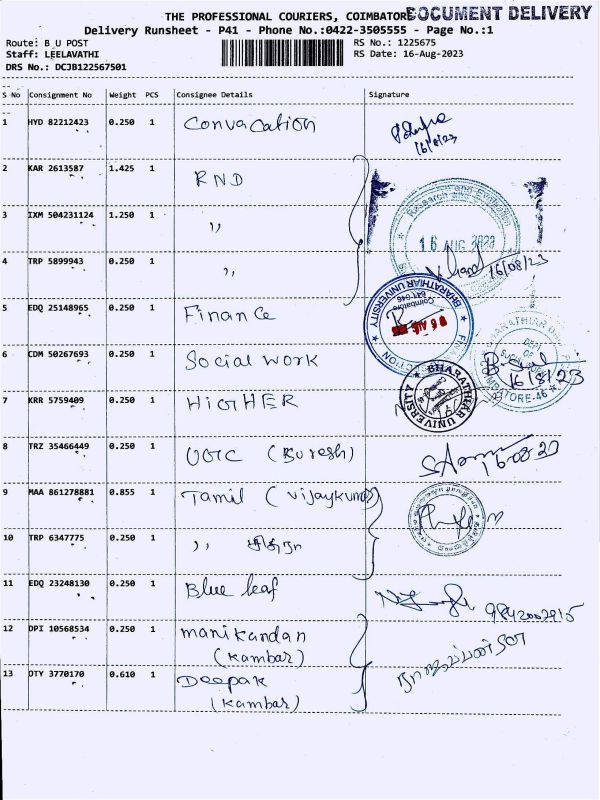 THE PROFESSIONAL COURIERS, COIMBATORE
DOCUMENT DELIVERY
Delivery Runsheet - P41 - Phone No.:0422-3505555 - Page No.:1
Route: B U POST
RS No.: 1225675
Staff: LEELAVATHI
RS Date: 16-Aug-2023
DRS No.: DCJB122567501
S No Consignment No Weight PCS Consignee Details Signature
1 HYD 82212423 0.250 1 Convacation
16/8/23
2 KAR 2613587 1.425 1 RND
3 IXM 504231124 1.250 1 ,,
16 AUG 2023
4 TRP 5899943 0.250 1 ,,
16/08/23
BHARATHIAR UNIVERSITY
Coimbatore
641 046
5 EDQ 25148965 0.250 1 Finance
6 CDM 50267693 0.250 1 Social work
16/8/23
COIMBATORE-46
7 KRR 5759409 0.250 1 HIGHER
BHARATHIAR UNIVERSITY
8 TRZ 35466449 0.250 1 UGC (Suresh)
16.08.23
9 MAA 861278881 0.855 1 Tamil (Vijaykumar)
10 TRP 6347775 0.250 1 ,,
11 EDQ 23248130 0.250 1 Blue leaf
9842002915
12 DPI 10568534 0.250 1 manikandan
(kambar)
13 OTY 3770170 0.610 1 Deepak
(kambar)